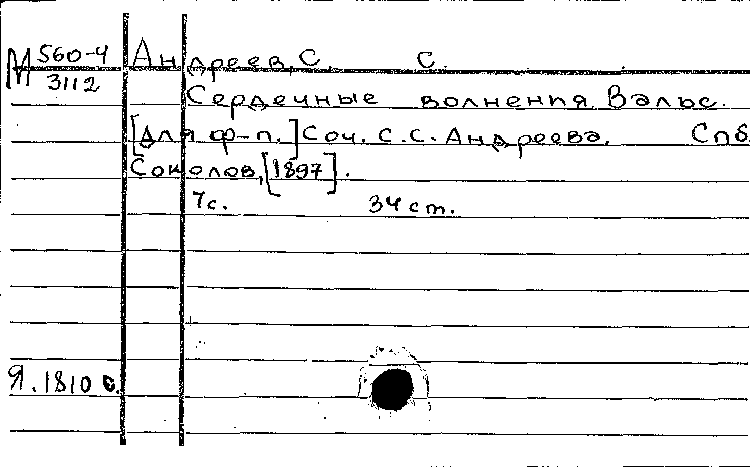 М 560-4 Андреев, С. С.
3112
Сердечные волнения. Вальс.
[Для ф-п.] Соч. С.С. Андреева. Спб.
Соколов, [1897].
7с. 34 ст.
Я. 1810 с.